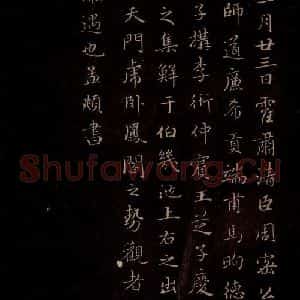 月廿三日霍肅清臣周密公
師道廉希貢端甫馬昫德
子構李衎仲賓王芝子慶
之集鮮于伯幾池上右之出
天門虎卧鳳閣之勢觀者
遇也孟頫書
Shufawang.CN